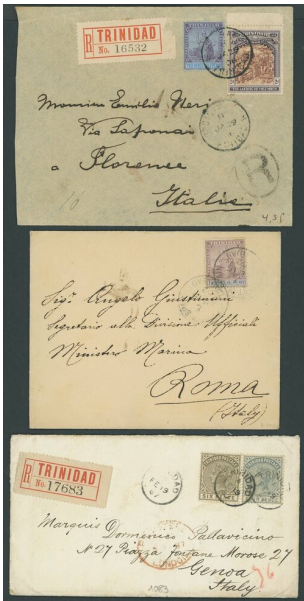 R TRINIDAD
No. 16532
TRINIDAD
Monsieur Emilio Neri
Via
a Florence
Italie
R
10
TRINIDAD
Sigr Angelo Giustiniani
Segretario alla Divisione Ufficiali
Ministero Marina
Roma
(Italy)
R TRINIDAD
No. 17683
TRINIDAD
FE 19
Marquis Domenico Pallavicino
No 27 Piazza Fontane Morose 27
Genoa
Italy
1083